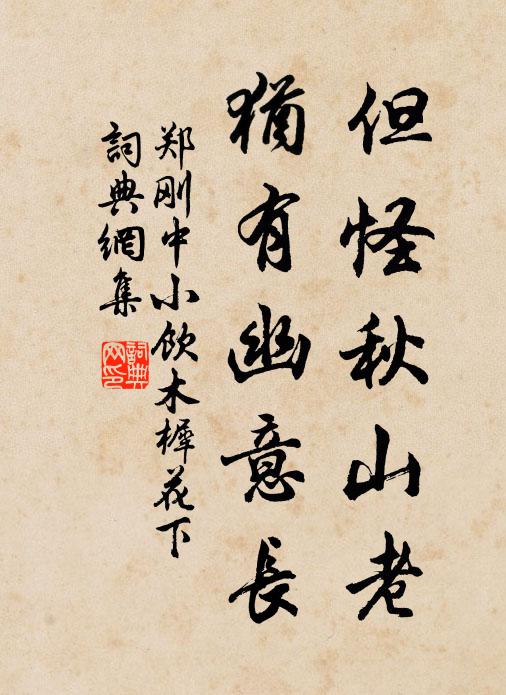 但怪秋山老
猶有幽意長
郑刚中小饮木樨花下
詞典網集
詞典
网印